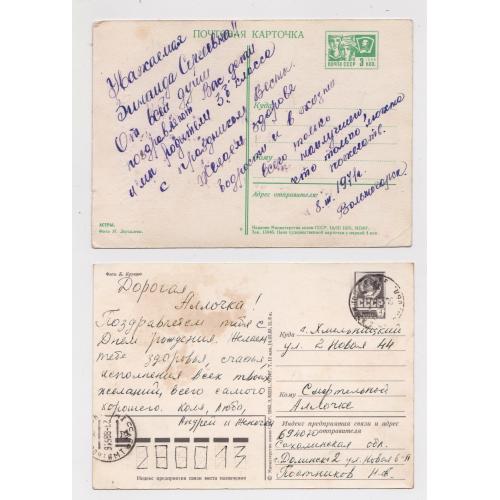 ПОЧТОВАЯ КАРТОЧКА
ПОЧТА СССР 3 КОП.
Уважаемая
Зинаида Сергеевна!!
От всей души
поздравляют Вас дети
и их родители 3 "З" класса
с праздником Весны.
Желаем здоровья
бодрости и в жизни
всего только наилучшего,
что только можно
пожелать.
8.III.1971г.
Волжегорск.
Куда
Кому
Адрес отправителя:
АСТРЫ.
Фото И.
Издание Министерства связи СССР.
Фото Б. Круцко
Дорогая
Аллочка!
Поздравляем тебя с
Днём рождения. Желаем
тебе здоровья, счастья,
исполнения всех твоих
желаний, всего самого
хорошего. Коля, Люба,
Андрей и Женечка
СССР
Куда г. Хмельницкий
ул. 2 Новая 44
Кому Смертельной
Аллочке
Индекс предприятия связи и адрес
отправителя
694070
Сахалинская обл.
г Долинск-2 ул. Новая
Постников Н.
280013
Индекс предприятия связи места назначения